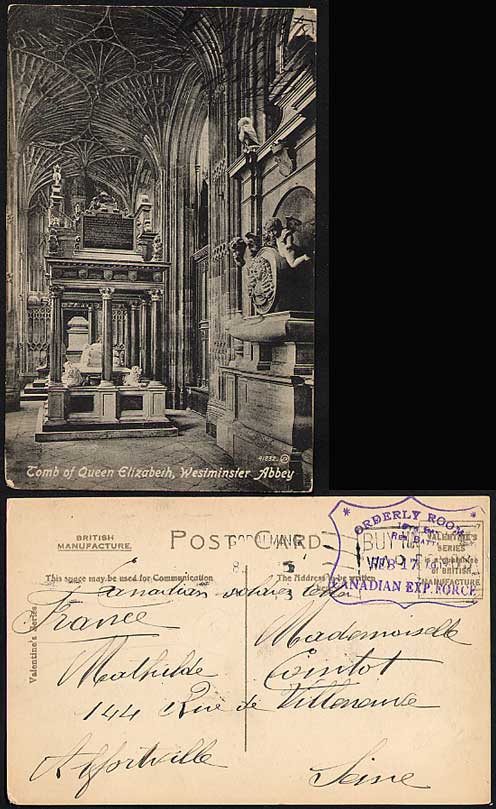 41232.
Tomb of Queen Elizabeth, Westminster Abbey
BRITISH
MANUFACTURE.
POST CARD
GODALMING
This space may be used for Communication
The Address to be written
Valentine's Series
ORDERLY ROOM
RES. BATT.
FEB 17
CANADIAN EXP. FORCE
BUY
VALENTINE'S
SERIES
OF BRITISH
MANUFACTURE
Canadian
France
Mademoiselle
Mathilde Comtot
144 Rue de Villeneuve
Alfortville
Seine